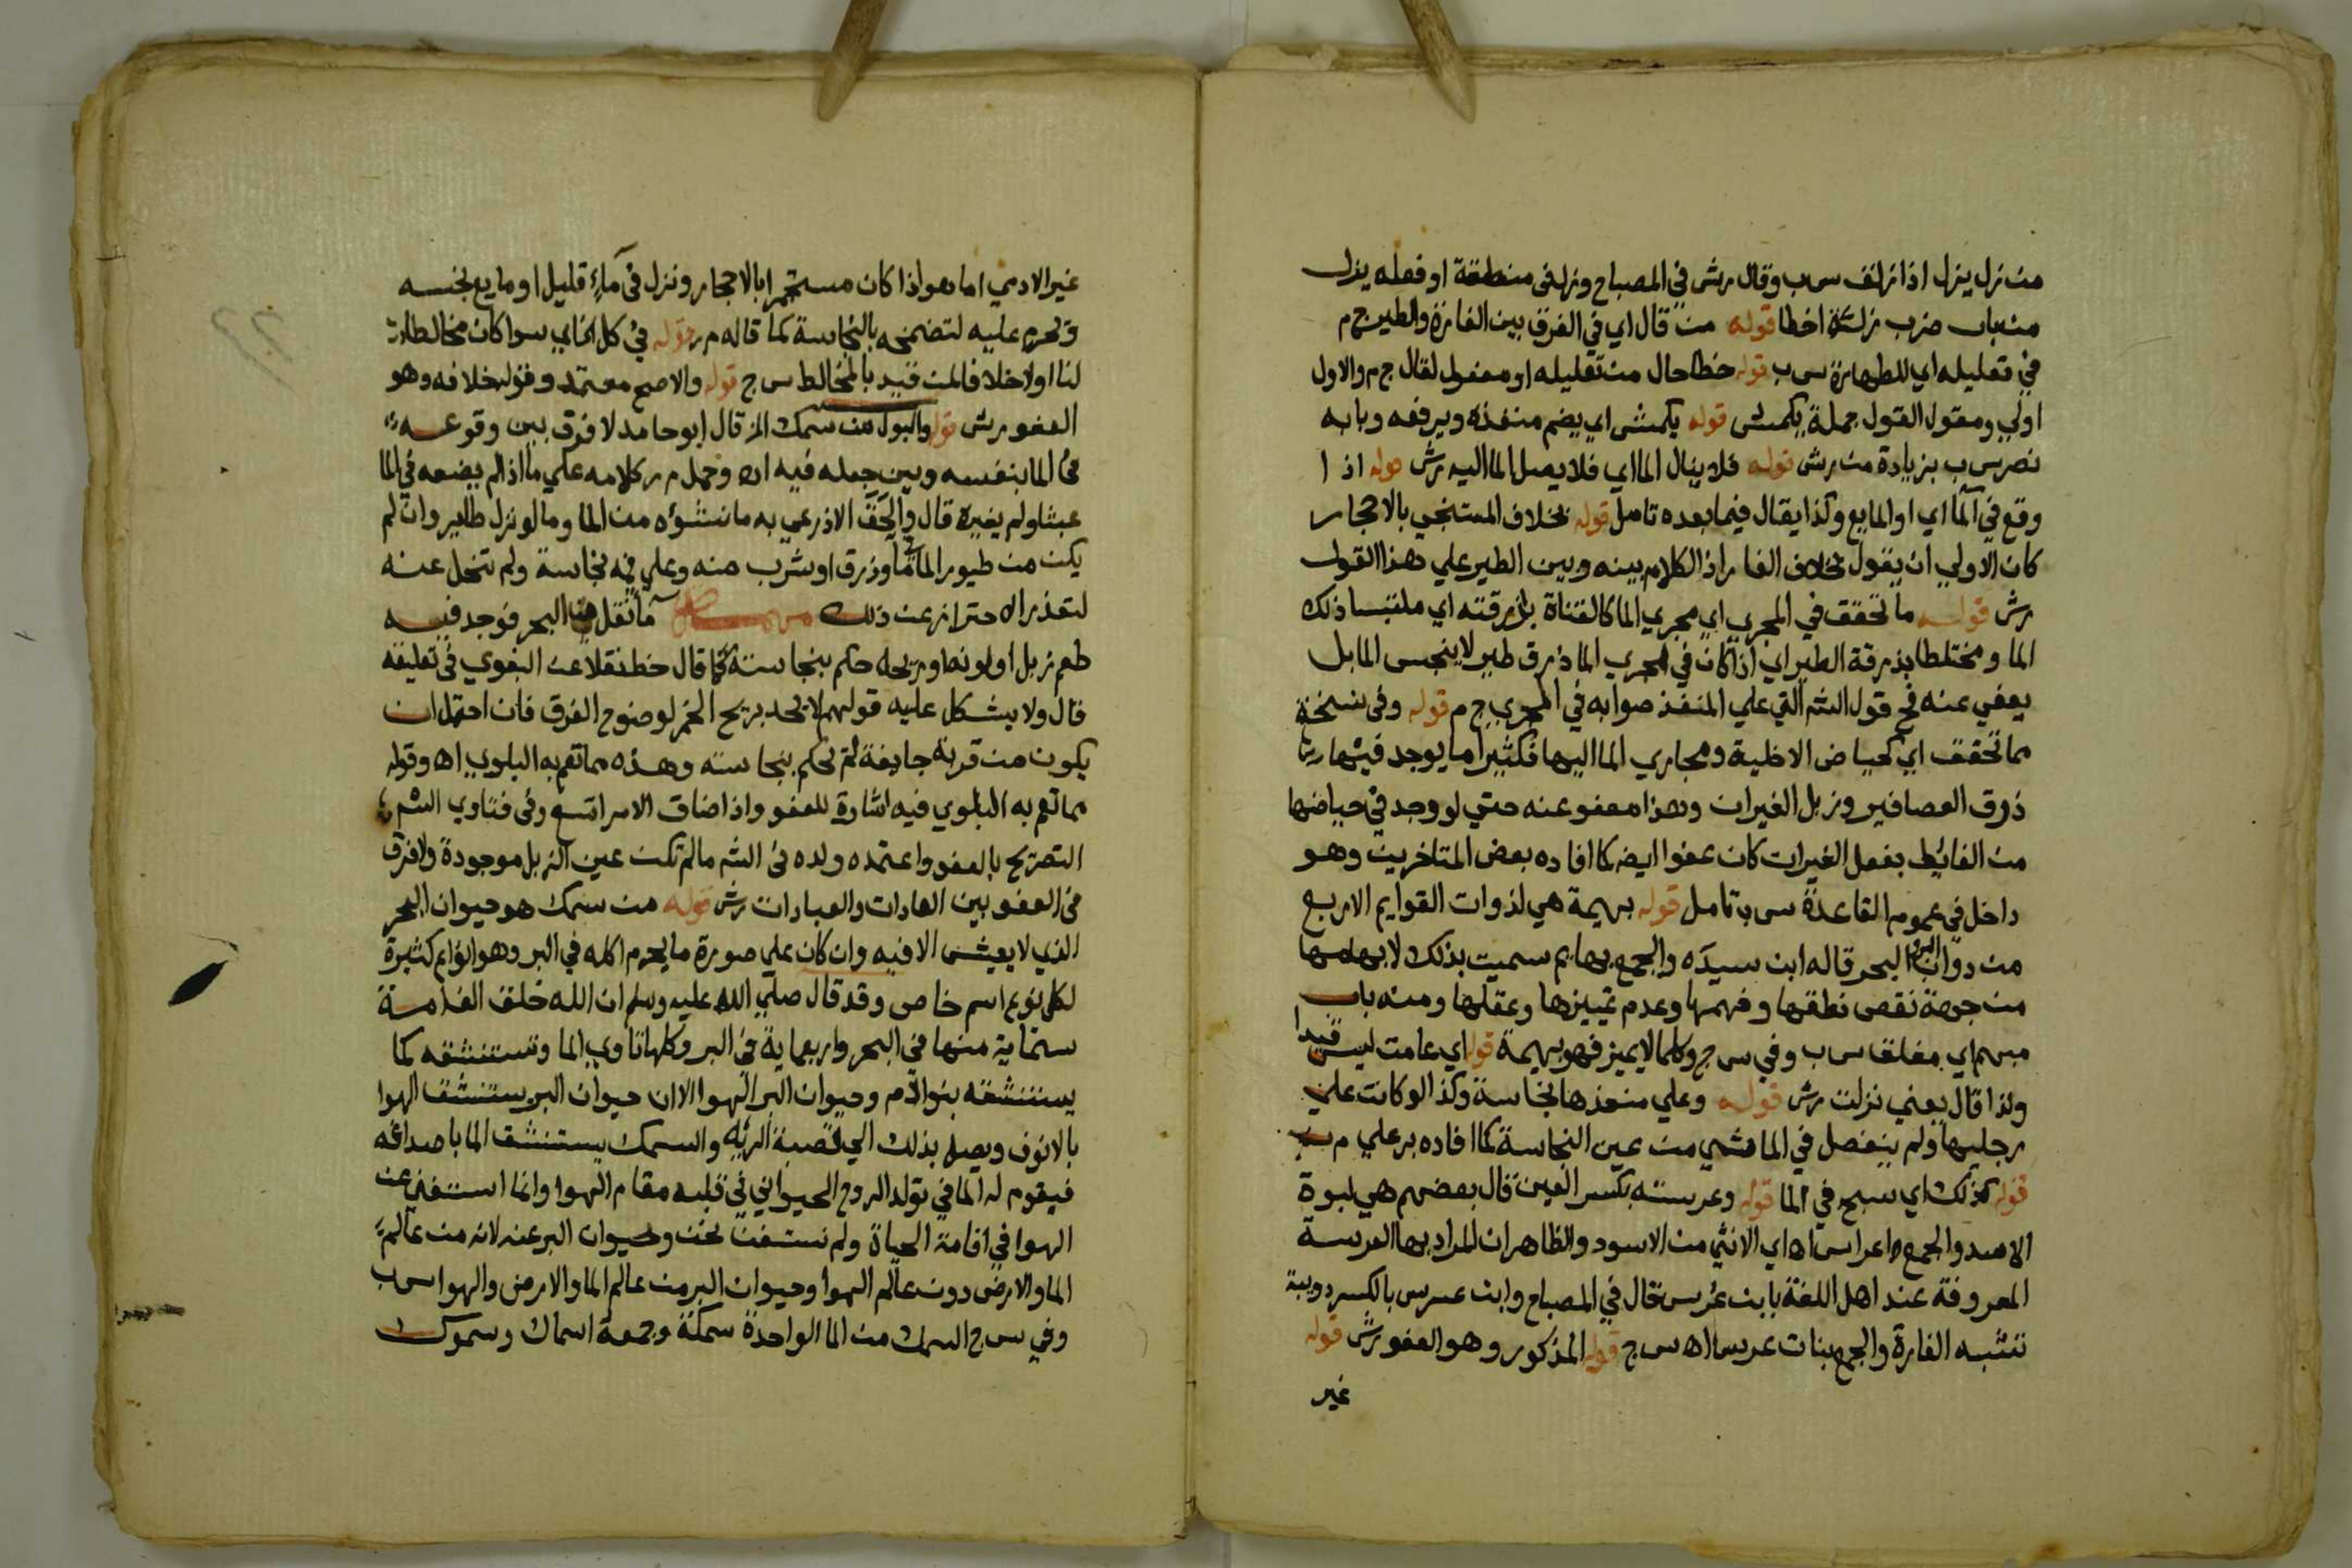 من زل يزل اذا زلق س ب وقال رش في المصباح وزل في منطقة او فعله يزل
من باب ضرب زلة اخطا قوله من قال اي في الفرق بين الفارة والطير ج م
في تعليله اي للطهارة س ب قوله خطا حال من تعليله او مفعول لقال ج م والاول
اولي ومقول القول جملة يكمش قوله يكمش اي يضم منفذه ويرفعه وبابه
نصر س ب بزيادة من رش قوله فلا ينال الما اي فلا يصل الما اليه رش قوله اذا
وقع في الما اي او المايع وكذا يقال فيما بعده تامل قوله بخلاف المستنجي بالاحجار
كان الاولي ان يقول بخلاف الفار اذ الكلام بينه وبين الطير علي هذا القول
رش قوله ما تحقق في المجري اي مجري الما كالقناة بذرقته اي ملتبسا ذلك
الما ومختلطا بذرقة الطير اي اذا كان في مجري الما ذرق طير لا ينجس الما بل
يعفي عنه فح قول الشم التي علي المنفذ صوابه في المجري ج م قوله وفي نسخة
مما تحقق اي كحياض الاخلية ومجاري الما اليها فكثيرا ما يوجد فيها
ذرق العصافير وزبل الفيران وهذا معفو عنه حتي لو وجد في حياضها
من الغائط بفعل الفيران كان عفوا ايضه كما افاده بعض المتاخرين وهو
داخل في عموم القاعدة س ب تامل قوله بهيمة هي لذوات القوايم الاربع
من دواب البر والبحر قاله ابن سيده والجمع بهايم سميت بذلك لابهامها
من جهة نقص نطقها وفهمها وعدم تمييزها وعقلها ومنه باب
مبهم اي مغلق س ب وفي س ج وكلما لا يميز فهو بهيمة قوله اي عامت ليس قيدا
ولذا قال يعني نزلت رش قوله وعلي منفذها نجاسة وكذا لو كانت علي
رجليها ولم ينفصل في الما شي من عين النجاسة كما افاده بر علي م
قوله كذلك اي سبح في الما قوله وعرسته بكسر العين قال بعضهم هي لبوة
الاسد والجمع اعراس اه اي الانثي من الاسود والظاهر ان المراد بها العرسة
المعروفة عند اهل اللغة بابن عرس قال في المصباح وابن عرس بالكسر دويبة
تشبه الفارة والجمع بنات عرس اه س ج قوله المذكور وهو العفو رش قوله
غير
غير الادمي اما هو اذا كان مستجمرا بالاحجار ونزل في ماء قليل او مايع نجسه
وتحرم عليه لتضمخه بالنجاسة كما قاله م ر قوله في كل سوا كان مخالطا
لنا اولا خلافا لمن قيد بالمخالط س ج قوله والاصح معتمد وقوله خلافه وهو
العفو رش قوله والبول من سمك الخ قال ابو حامد لا فرق بين وقوعه
في الما بنفسه وبين جعله فيه اه وحمل م ر كلامه علي ما اذا لم يضعه في الما
عبثا ولم يغيره قال والحق الاذرعي به ما نشؤه من الما وما لو نزل طاير وان لم
يكن من طيور الما في ما وذرق او شرب منه وعلي فمه نجاسة ولم تنحل عنه
لتعذر الاحتراز عن ذلك ما نقل من البحر فوجد فيه
طعم زبل او لونه او ريحه حكم بنجاسته كما قال خط نقلا عن البغوي في تعليقه
قال ولا يشكل عليه قولهم لا يحد بريح الخمر لوضوح الفرق فان احتمل ان
يكون من قربه جايفة لم تحكم بنجاسته وهذه مما تعم به البلوي اه وقوله
مما تعم به البلوي فيه اشارة للعفو واذا ضاق الامر اتسع وفي فتاوي الشم
التصريح بالعفو واعتمده ولده في الشم ما لم تكن عين الزبل موجودة ولا فرق
في العفو بين العادات والعبادات رش قوله من سمك هو حيوان البحر
الذي لا يعيش الا فيه وان كان علي صورة ما يحرم اكله في البر وهو انواع كثيرة
لكل نوع اسم خاص وقد قال صلي الله عليه وسلم ان الله خلق الف امة
ستماية منها في البحر واربعماية في البر وكلها تاوي الما وتستنشقه كما
يستنشقه بنو ادم وحيوان البر الهوا الا ان حيوان البر يستنشق الهوا
بالانوف ويصل بذلك الي قصبة الريه والسمك يستنشق الما باصداغه
فيقوم له الما في تولد الروح الحيواني في قلبه مقام الهوا وانما استغني عن
الهوا في اقامة الحياة ولم نستغن نحن وحيوان البر عنه لانه من عالم
الما والارض دون عالم الهوا وحيوان البر من عالم الما والارض والهوا س ب
وفي س ج السمك من الما الواحدة سمكة وجمعه اسماك وسموك